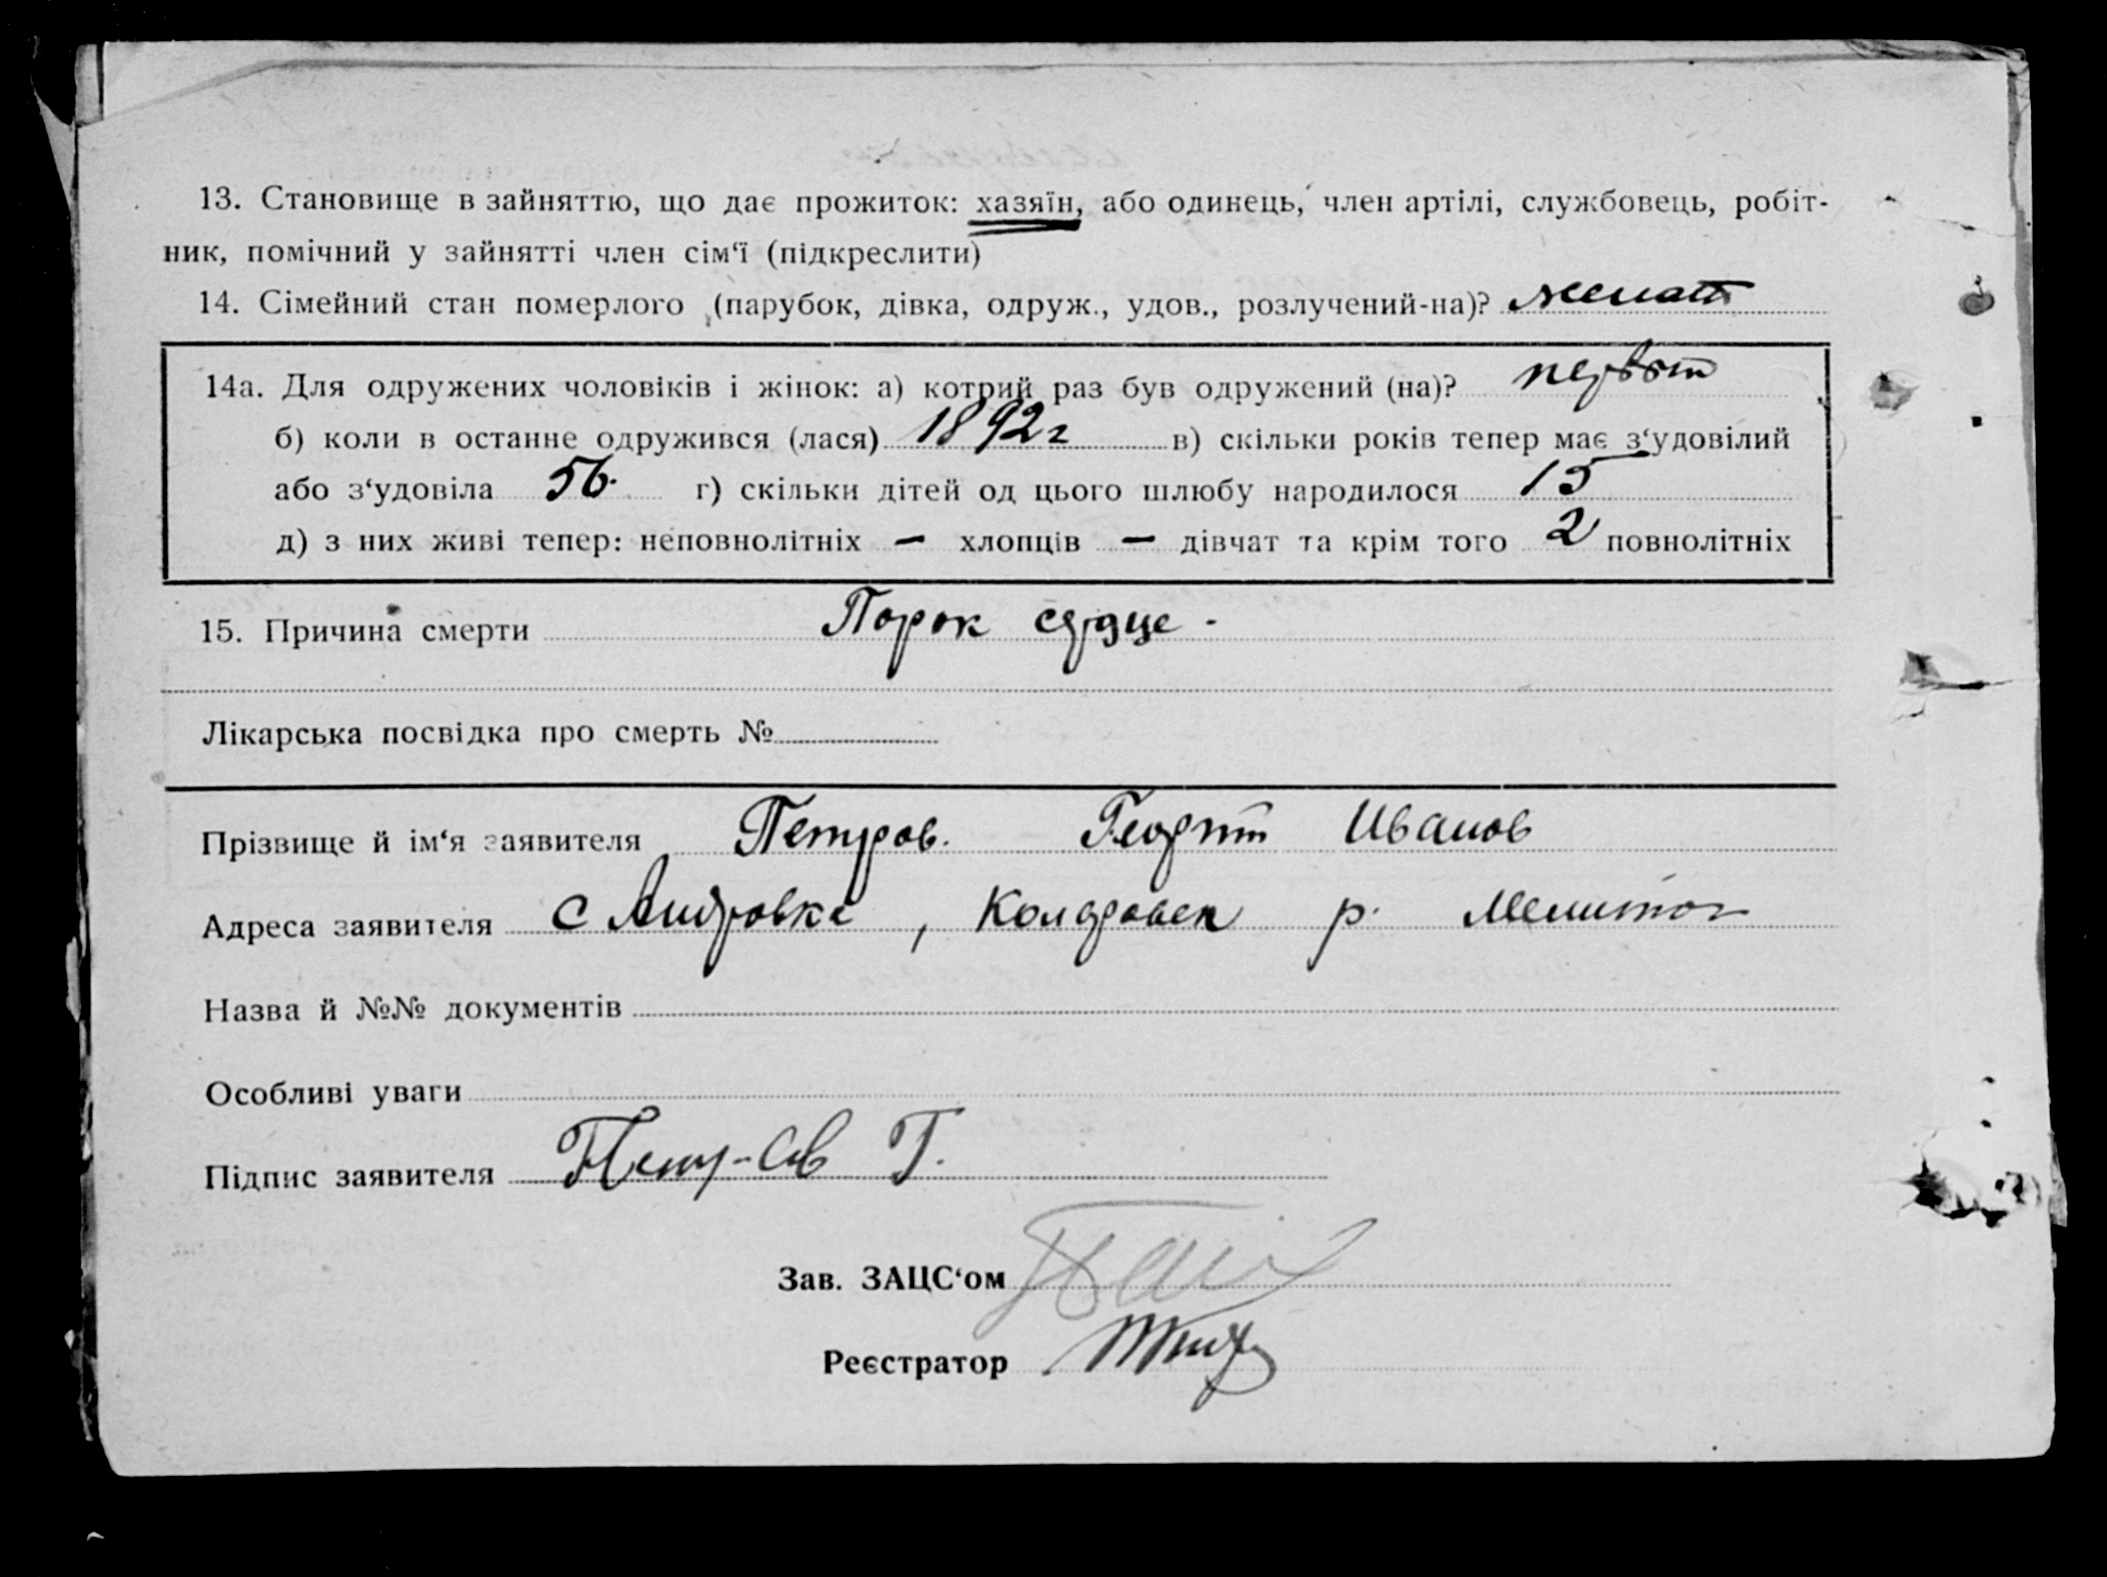 13. Становище в зайняттю, що дає прожиток: хазяїн, або одинець, член артілі, службовець, робіт-
ник, помічний у зайнятті член сім‘ї (підкреслити)
14. Сімейний стан померлого (парубок, дівка, одруж., удов., розлучений-на)? женат
14а. Для одружених чоловіків і жінок: а) котрий раз був одружений (на)? первый
б) коли в останнє одружився (лася) 1892 г в) скільки років тепер має з‘удовілий
або з‘удовіла 56. г) скільки дітей од цього шлюбу народилося 15
д) з них живі тепер: неповнолітніх — хлопців — дівчат та крім того 2 повнолітніх
15. Причина смерти Порок сердце.
Лікарська посвідка про смерть №
Прізвище й ім‘я заявителя Петров. Георгий Иванов
Адреса заявителя с , р. Мелитоп
Назва й №№ документів
Особливі уваги
Підпис заявителя Петров Г.
Зав. ЗАЦС‘ом
Реєстратор